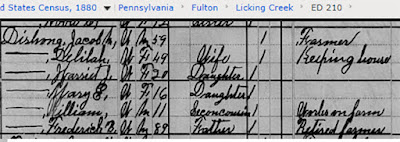 d States Census, 1880 ▾ Pennsylvania › Fulton › Licking Creek › ED 210 ›
Dishong, Jacob W M 59 1 Farmer
—— Delilah, W F 49 Wife 1 Keeping house
—— Harriet W F 20 Daughter 1
—— Mary E. W F 16 Daughter 1
—— William, W M 11 Seconcousin 1 Works on farm
—— Frederick W M 89 Father Retired farmer